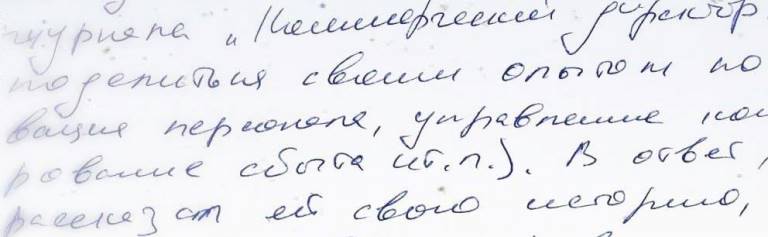 журнала „Коммерческий директор
поделиться своим опытом по
вации персонала, управление ком
рование сбыта и т.п.). В ответ,
рассказал ей свою историю,